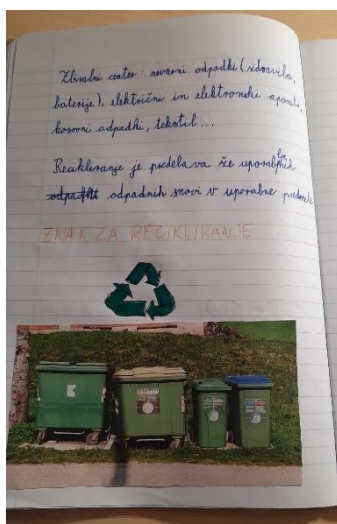 Zbiralni center: nevarni odpadki (zdravila,
baterije), električni in elektronski aparati,
kosovni odpadki, tekstil...
Recikliranje je predelava že uporabljenih
odpadki odpadnih snovi v uporabne predmete
ZNAK ZA RECIKLIRANJE